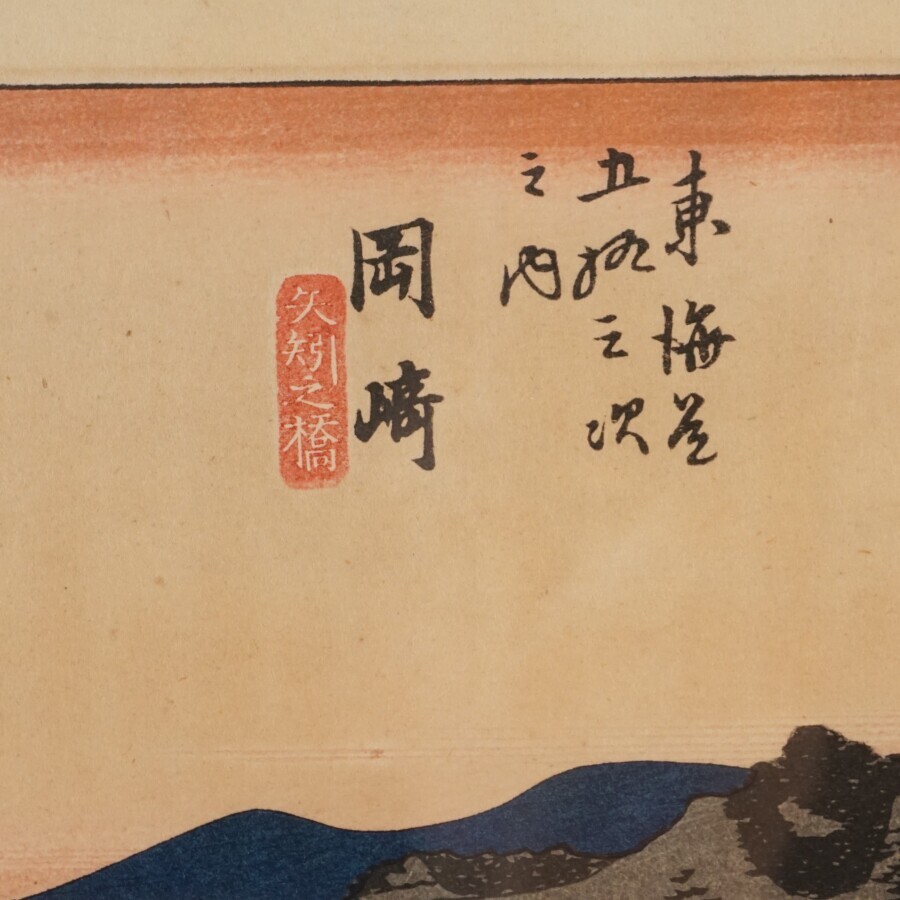 東海道
五拾三次
之内
岡崎
矢矧之橋